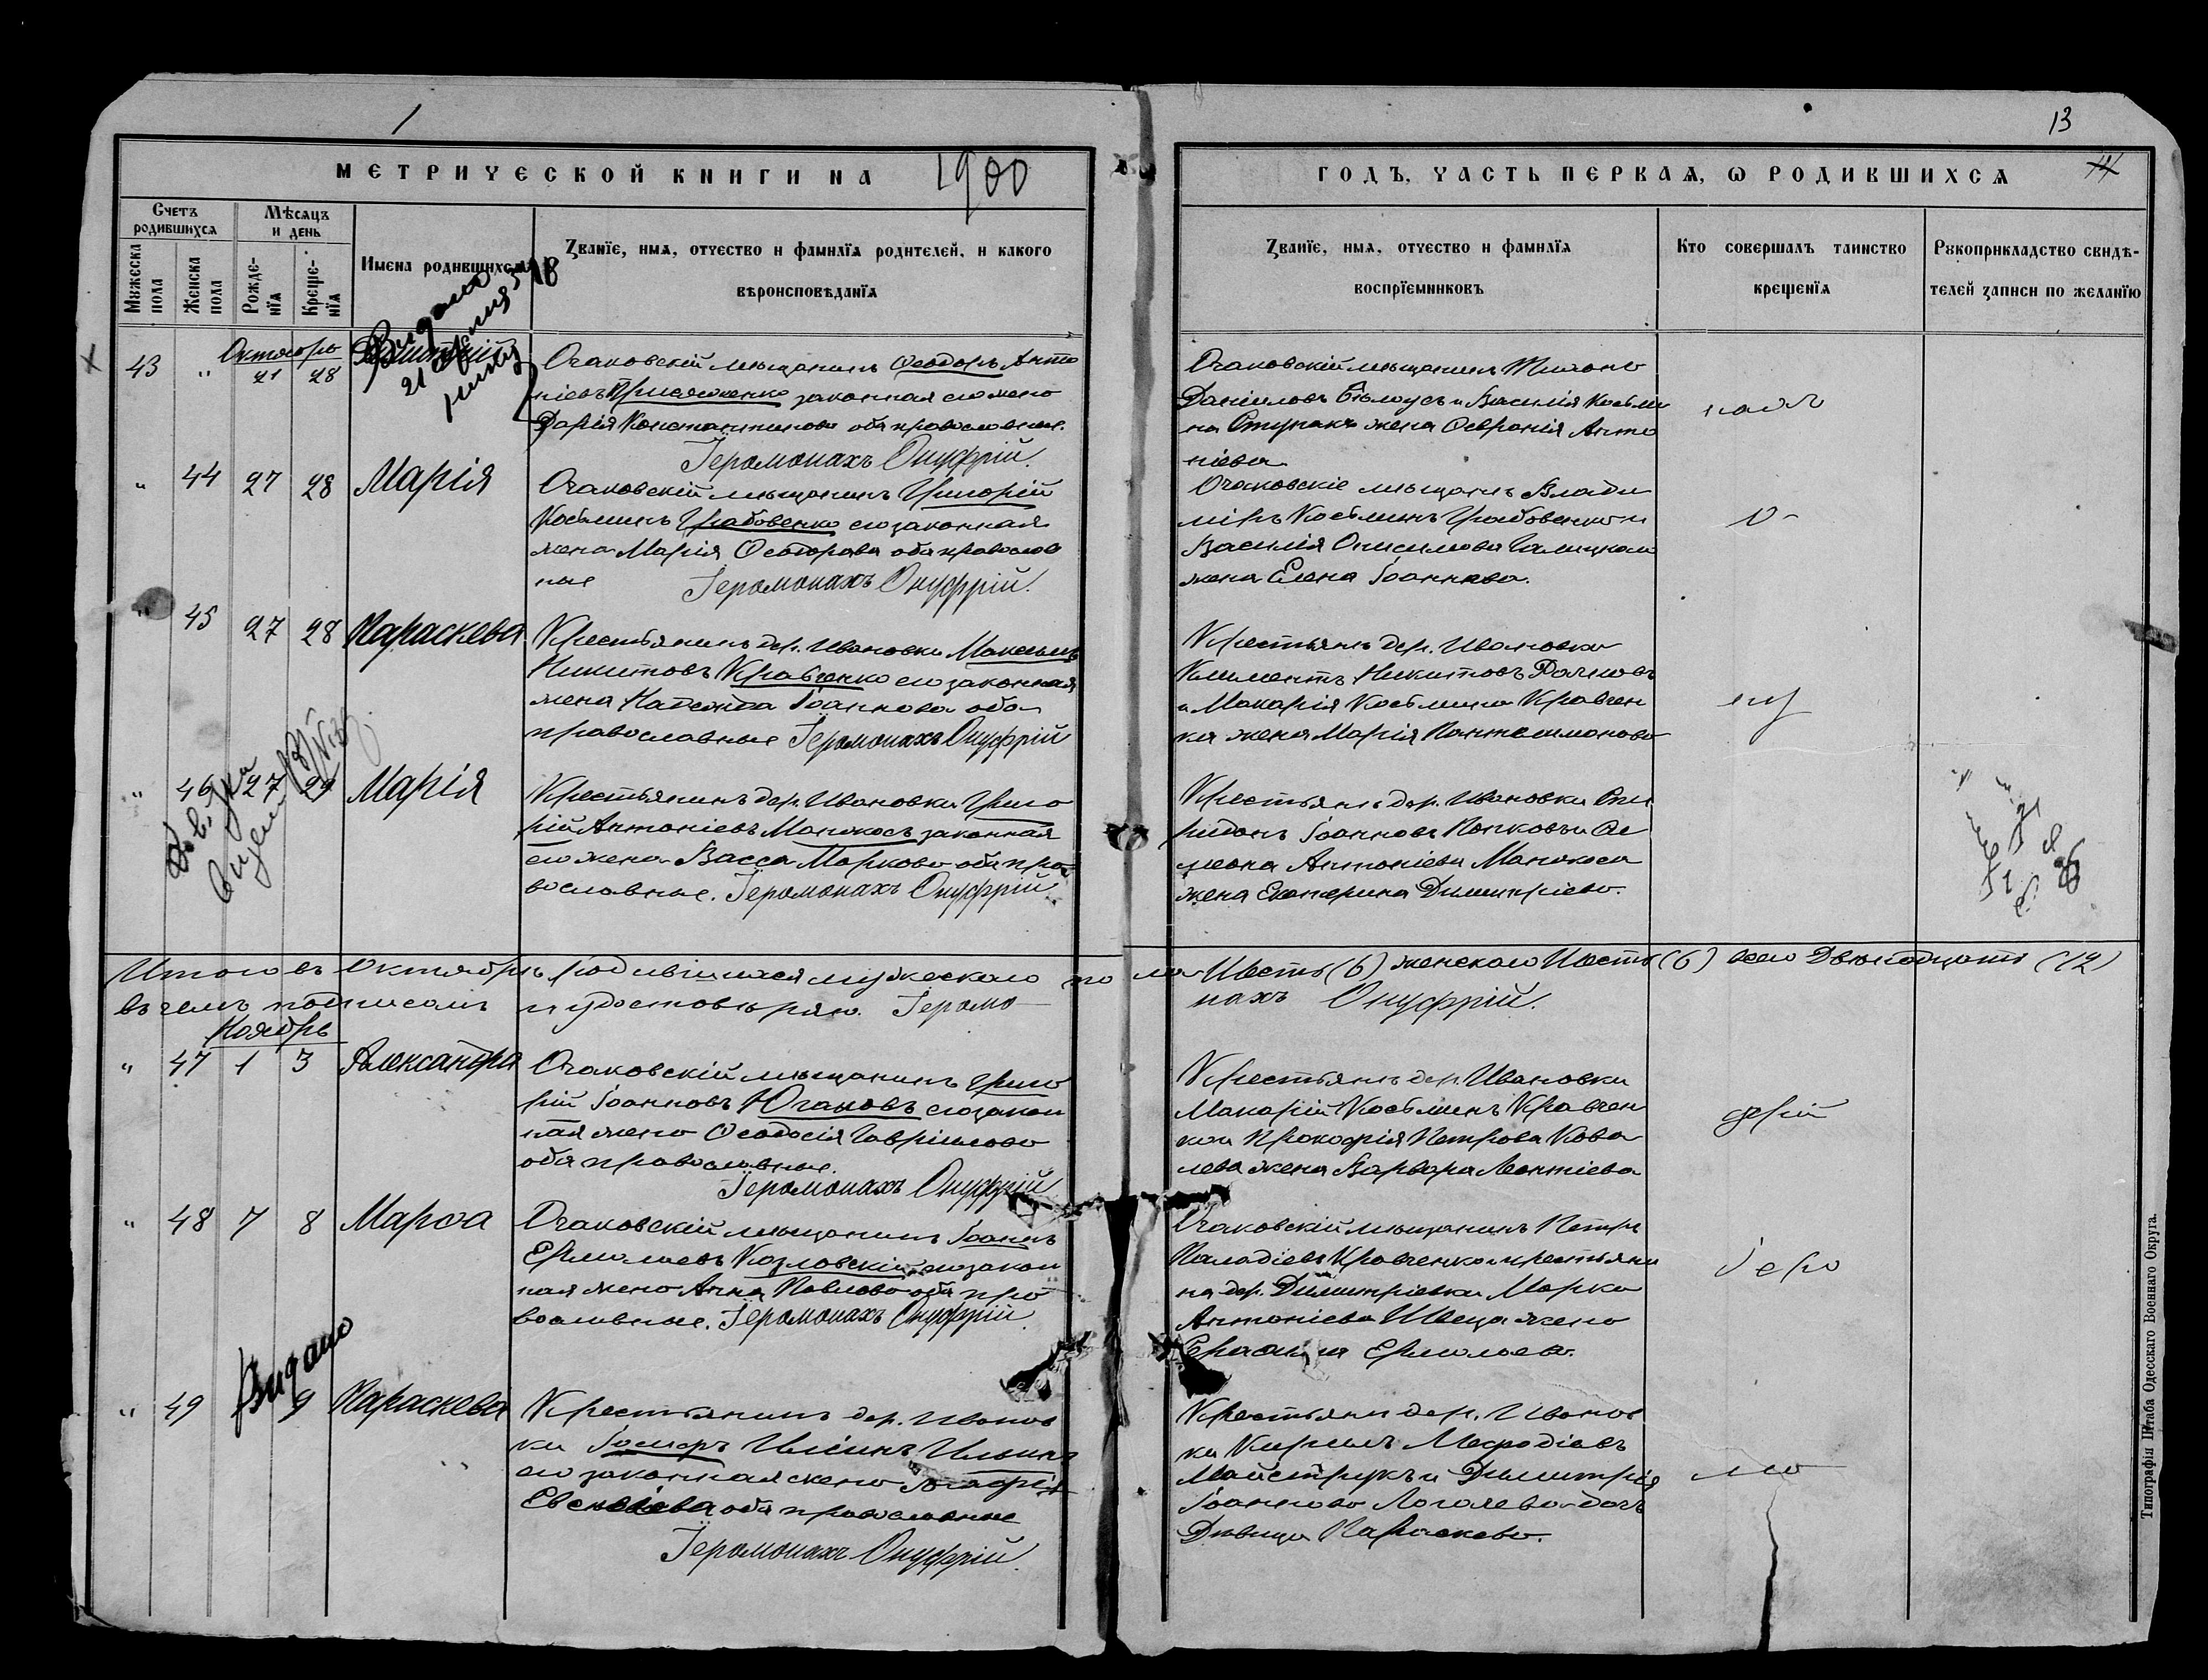 13
МЕТРИЧЕСКОЙ КНИГИ НА 1900
ГОДЪ, ЧАСТЬ ПЕРВАЯ, Ѡ РОДИВШИХСЯ
Счетъ родившихся
Мужеска пола
Женска пола
Мѣсяцъ и день
Рожденїя
Крещенїя
Имена родившихся
Званїе, имя, отчество и фамилїя родителей, и какого
вѣроисповѣданїя
Званїе, имя, отчество и фамилїя
воспрїемниковъ
Кто совершалъ таинство
крещенїя
Рукоприкладство свидѣ-
телей записи по желанїю
Октябрь
43 " 21 28
Очаковскій мѣщанинъ Ѳеодоръ Анто
ніевъ законная его жена
Дарія Константинова оба православные.
Іеромонахъ Онуфрій
Очаковскій мѣщанинъ Тихонъ
Даніиловъ Бѣлоусъ и Василія Косьми
на Ступака жена Евфросинія Анто
ніева
" 44 27 28 Марія
Очаковскій мѣщанинъ Григорій
Косьминъ Грабовенко его законная
жена Марія Ѳеодорова оба православ
ные Іеромонахъ Онуфрій.
Очаковскіе мѣщане Влади
міръ Косьминъ Грабовенко и
Василія Онисимова Галицкаго
жена Елена Іоаннова.
" 45 27 28 Параскева
Крестьянинъ дер. Ивановки Максимъ
Никитовъ Кравченко его законная
жена Надежда Іоаннова оба
православные Іеромонахъ Онуфрій
Крестьяне дер. Ивановки
Климентъ Никитовъ
и Макарія Косьмина Кравчен
ка жена Марія Пантелимонова
" 46 27 29 Марія
Крестьянинъ дер. Ивановки Григо
рій Антоніевъ Манокосъ законная
его жена Васса Маркова оба пра
вославные. Іеромонахъ Онуфрій
Крестьяне дер. Ивановки Спи
ридонъ Іоанновъ Попковъ и Си
меона Антоніева Манокоса
жена Екатерина Димитріева.
Итого въ Октябрѣ родившихся мужескаго пола Шесть (6) женскаго Шесть (6) всего Двѣнадцать (12)
въ чемъ подписомъ и удостовѣряю. Іеромонахъ Онуфрій.
Ноябрь
" 47 1 3 Александра
Очаковскій мѣщанинъ Григо
рій Іоанновъ Югановъ его закон
ная жена Ѳеодосія Гавріилова
оба православные.
Іеромонахъ Онуфрій
Крестьяне дер. Ивановки
Макарій Косьминъ Кравчен
ко и Прокофія Петрова Кова
лева жена Варвара Леонтіева
" 48 7 8 Марѳа
Очаковскій мѣщанинъ Іоаннъ
Ермолаевъ Козловскій его закон
ная жена Анна Павлова оба пра
вославные. Іеромонахъ Онуфрій
Очаковскій мѣщанинъ Петръ
Паладіевъ Кравченко и крестьяни
на дер. Димитріевки Марка
Антоніева Швеца жена
Ермолаева.
Видано
" 49 9 Параскева
Крестьянинъ дер. Иванов
ки Іосифъ Иліинъ Ильинъ
его законная жена Агафія
оба православные
Іеромонахъ Онуфрій.
Крестьяне дер. Иванов
ки Кириллъ Меѳодіевъ
Майструкъ и Димитрія
Іоаннова дочь
Дѣвица Параскева.
Типографія Штаба Одесскаго Военнаго Округа.